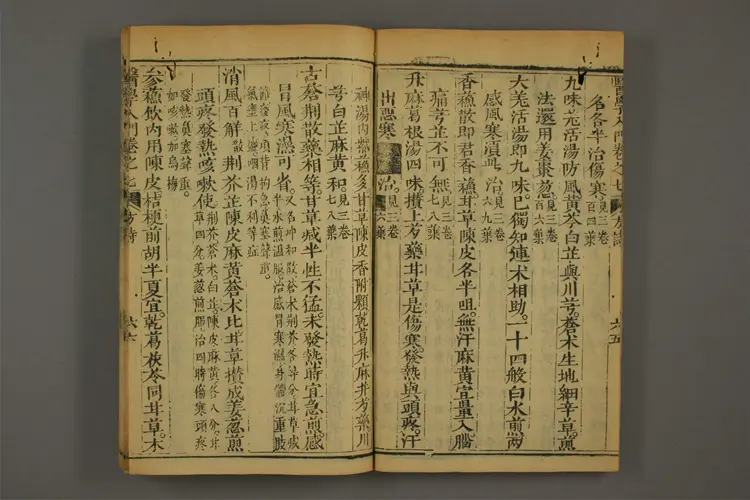 醫學入門卷之七 方詩 六五
名各半治傷寒見三卷百四葉
九味羌活湯防風黃芩白芷與川芎蒼朮生地細辛草煎
法還用姜棗葱見三卷六葉
大羌活湯即九味己獨知連朮相助一十四般白水煎兩
感風寒須此治見三卷六九葉
香蘓散即君香蘓耳草陳皮各半咀無汗麻黃宜量入腦
痛芎芷不可無見三卷七八葉
升麻葛根湯四味攢上芍藥耳草是傷寒發熱與頭疼汗
出惡寒 治見三卷六葉
神湯內帶蘓多甘草陳皮香附顆乾葛升麻并芍藥川
芎白芷麻黃和見三卷七八葉
古蒼荆散藥相等甘草減半性不猛未發熱時宜急煎感
冒風寒濕可省
消風百解散荆芥芷陳皮麻黃蒼朮比耳草攢成姜葱煎
頭疼發熱咳嗽使荆芥蒼朮白芷陳皮麻黃各八分耳草四分姜葱煎服治四時傷寒頭疼
發熱鼻塞聲重如咳嗽加烏梅
參蘓飲內用陳皮桔梗前胡半夏宜乾葛茯苓同耳草木
醫學入門卷之七 方詩 六六